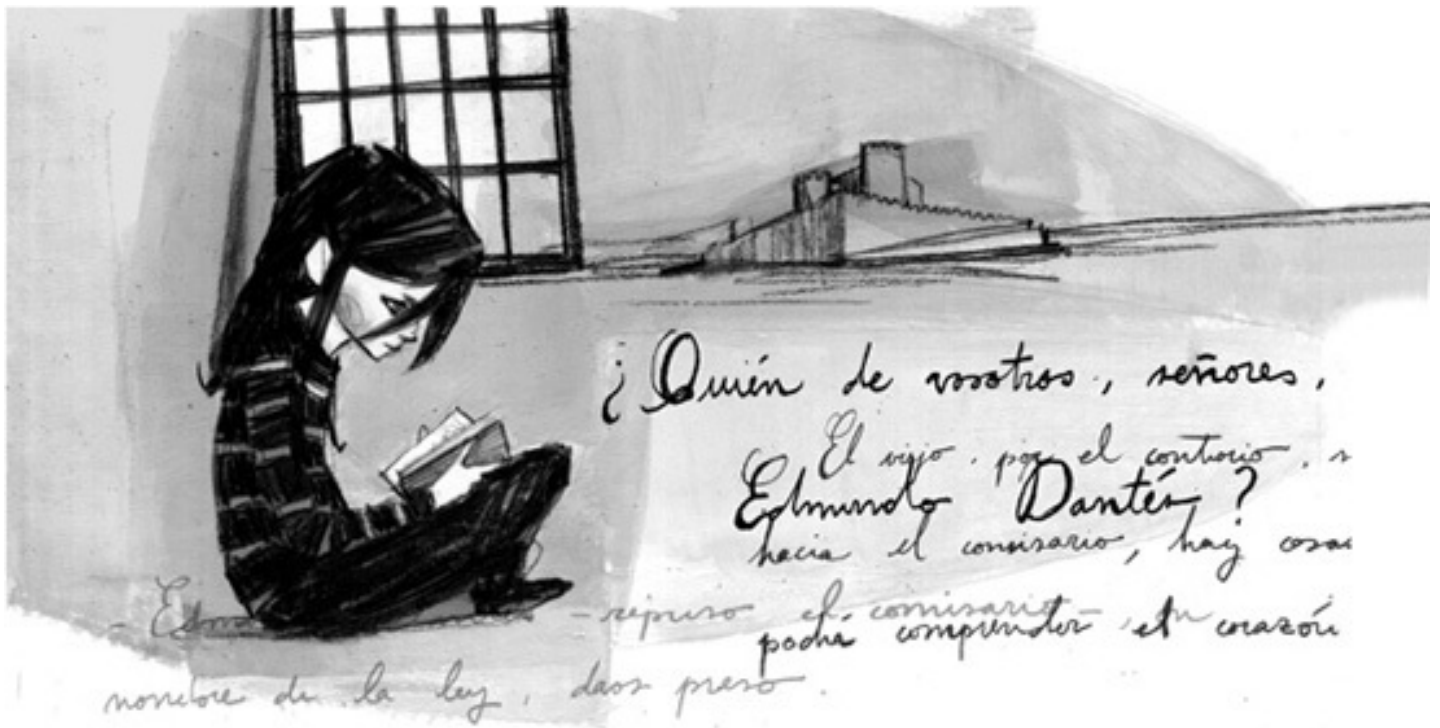 ¿Quién de vosotros, señores,
El viejo, por el contrario,
Edmundo Dantés?
hacia el comisario, hay cosas
- repuso el comisario -, en
podía comprender el corazón
nombre de la ley, daos preso.